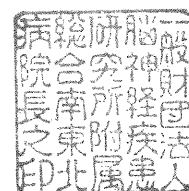 一般財団法人
脳神経疾患
研究所附属
総合南東北
病院長之印